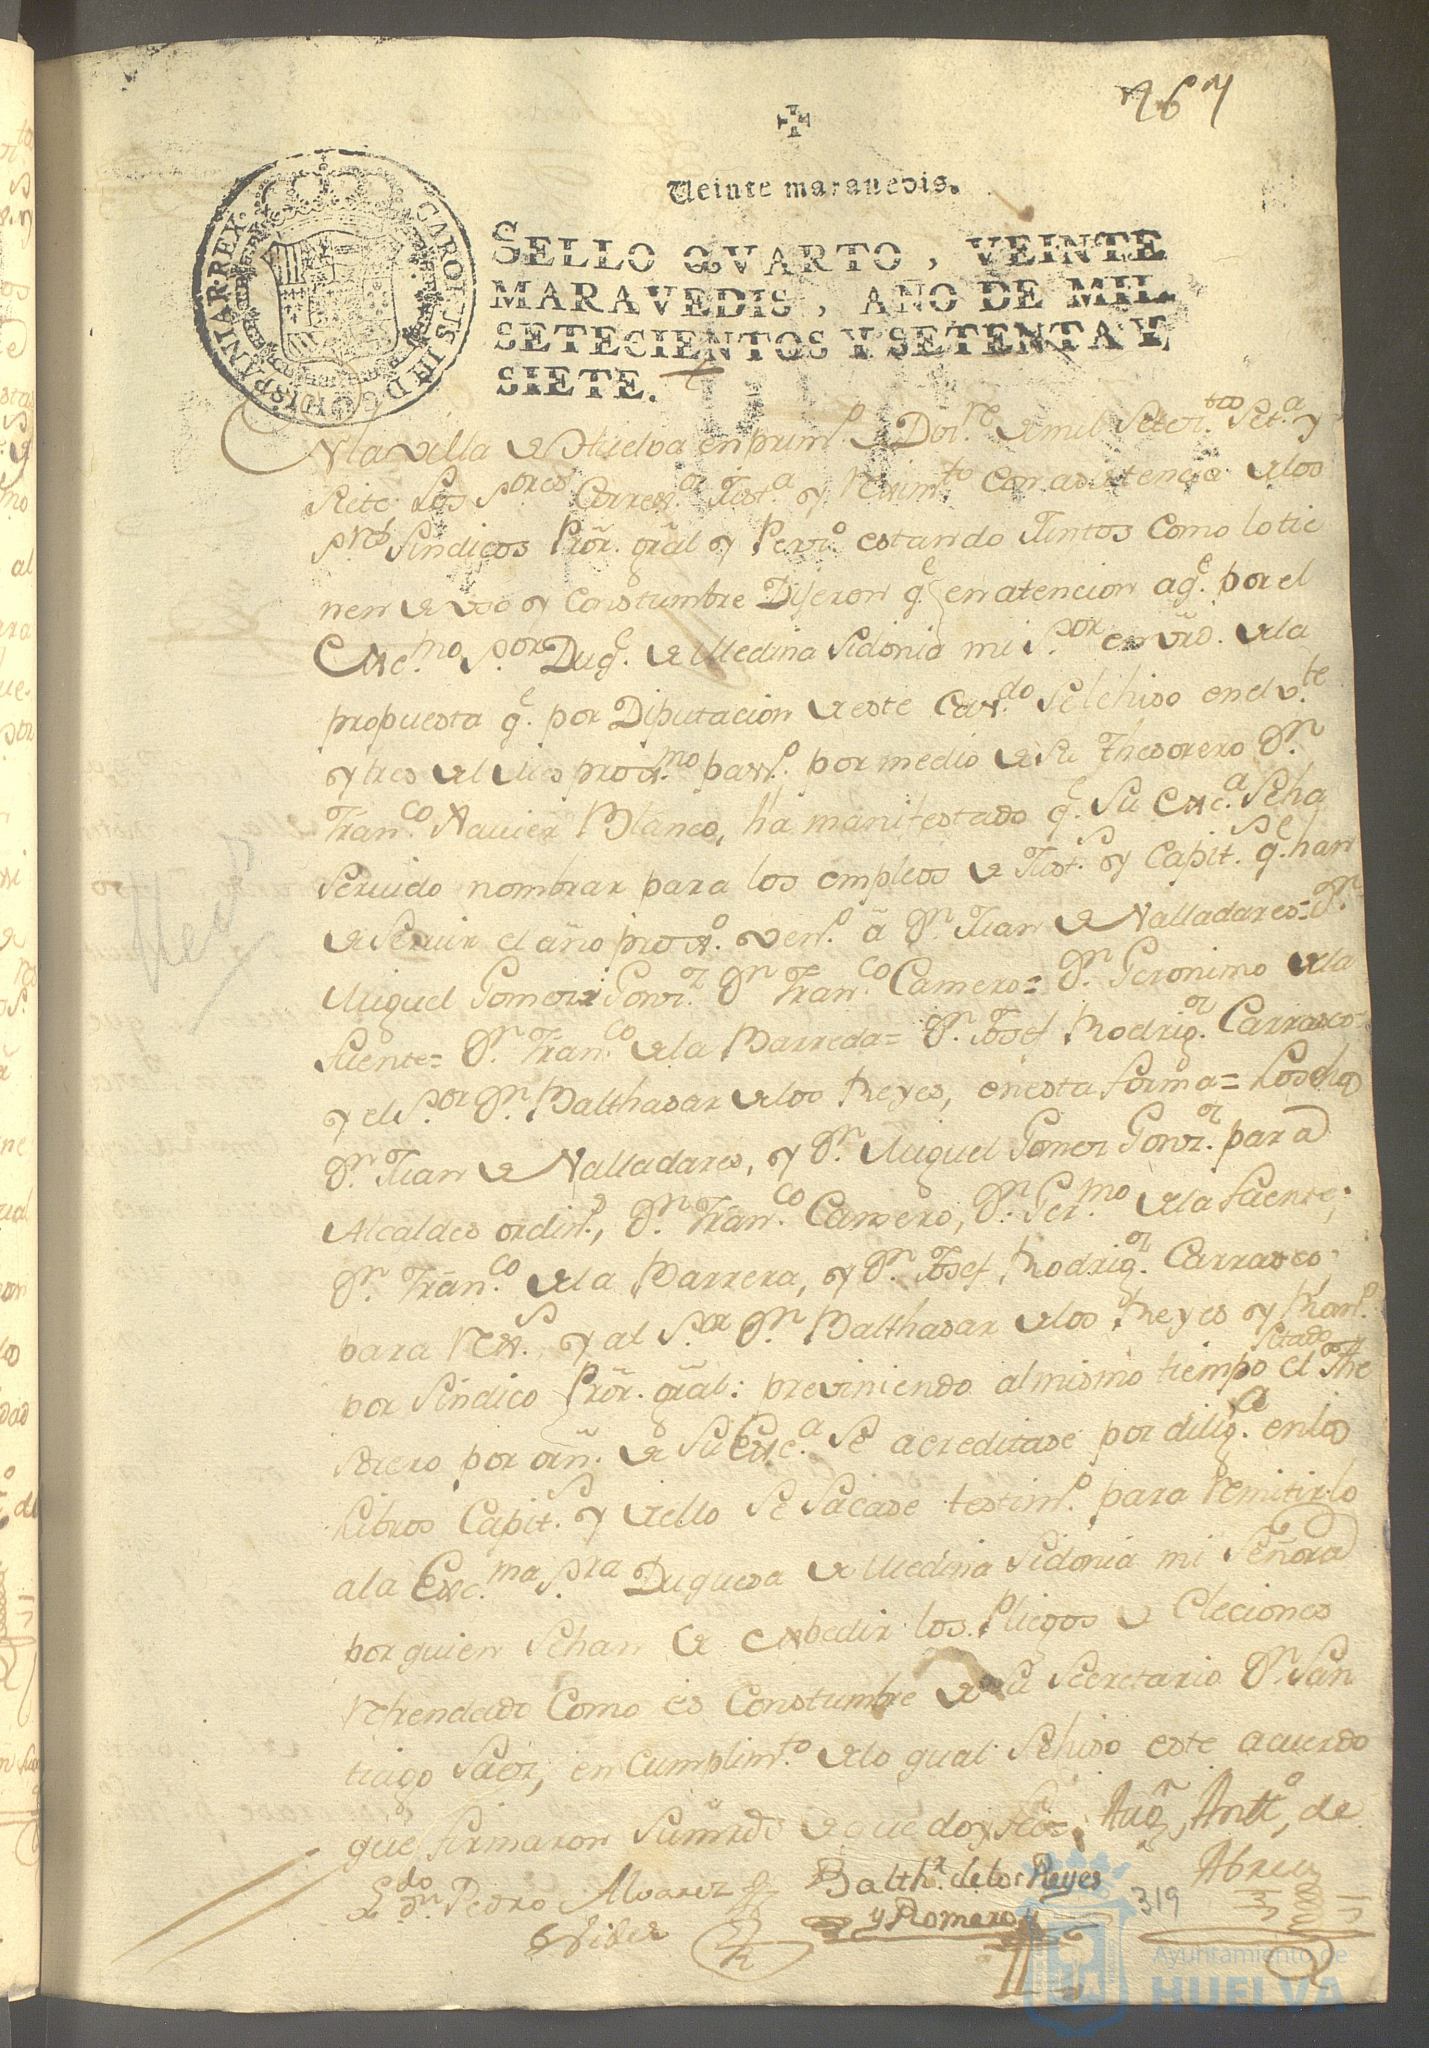 767
Veinte maravedis.
CAROLUS III D G HISPANIAR REX
SELLO QVARTO, VEINTE
MARAVEDIS, AÑO DE MIL
SETECIENTOS Y SETENTA Y
SIETE.
En la villa de Huelva en prim.o de Diz.re de mil Setezi.tos Set.a y
siete Los S.ores Correx.or Just.a y Rexim.to con asistencia de los
S.res Sindicos Prõr. grãl y Pers.o estando Juntos como lo tie
nen de uso y Constumbre Dijeron q.e en atencion a q.e por el
Exc.mo S.or Duq.e de Medina Sidonia mi S.or en vrd. de la
propuesta q.e por Diputacion de este Cav.do se le hiso en el v.te
y tres del mes prox.mo pax.o por medio de su Thesorero D.n
Fran.co Xavier Blanco, ha manifestado q.e Su Exc.a Se ha
servido nombrar para los empleos de Just.s y Capit.s q.e han
de servir el año prox.o ven.o ã D.n Juan de Valladares= D.n
Miguel Gomez Gonz.z D.n Fran.co Camero= D.n Geronimo de la
fuente= D.n Fran.co de la Barreda= D.n Josef Rodrig.z Carrasco=
y el S.or D.n Balthasar de los Reyes, en esta forma= Los dhos
D.n Juan de Valladares, y D.n Miguel Gomez Gonz.z para
Alcaldes ordin.s, D.n Fran.co Camero, D.n Ger.mo de la fuente;
D.n Frãn.co de la Barrera, y D.n Josef Rodrig.z Carrasco,
para Rex.s y al S.or D.n Balthasar de los Reyes y Rom.o
por Sindico Prõr. grãl: previniendo al mismo tiempo el citado The
sorero por orñ. de Su Exc.a se acreditase por dilig.a en los
Libros Capit.s y de ello se sacase testim.o para remitirlo
a la Exc.ma S.ra Duquesa de Medina Sidonia mi Señora
por quien se han de expedir los Pliegos de Eleciones
Refrendado Como es Constumbre de su Secretario D.n San
tiago Saez, en Cumplim.to de lo qual se hiso este acuerdo
que firmaron sus mrds de que doy feé=
L.do D.n Pedro Alvarez
Balth.r de los Reyes
y Romero
Aug.n Ant.o de
Abreu
319
Ayuntamiento de
HUELVA